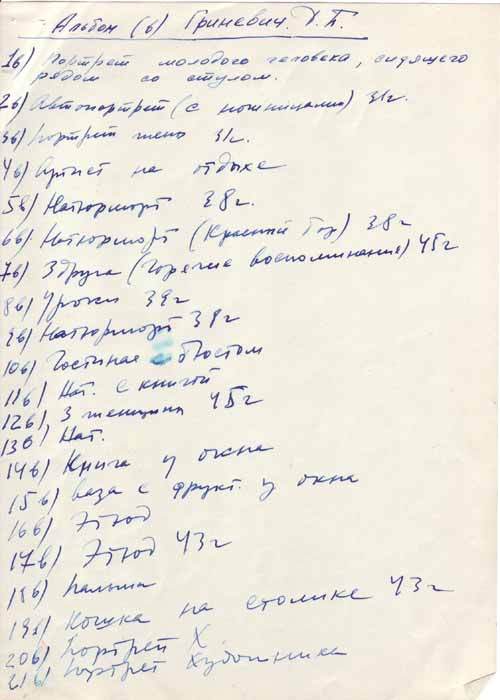 Альбом (в) Гриневич. Д. П.
1в) Портрет молодого человека, сидящего
рядом со стулом.
2в) Автопортрет (с ножницами) 31г.
3в) Портрет жены 31г.
4в) Артист на отдыхе
5в) Натюрморт 38г.
6в) Натюрморт (Красный Гор) 38г
7в) 3 друга (Горячие воспоминания) 45г
8в) Уроки 39г
9в) Натюрморт 39г
10в) Гостиная с бюстом
11в) Нат. с книгой
12в) 3 женщины 45г
13в) Нат.
14в) Книга у окна
15в) ваза с фрукт. у окна
16в) Этюд
17в) Этюд 43г
18в) Пальма
19в) Кошка на столике 43г
20в) Портрет Х
21в) Портрет художника